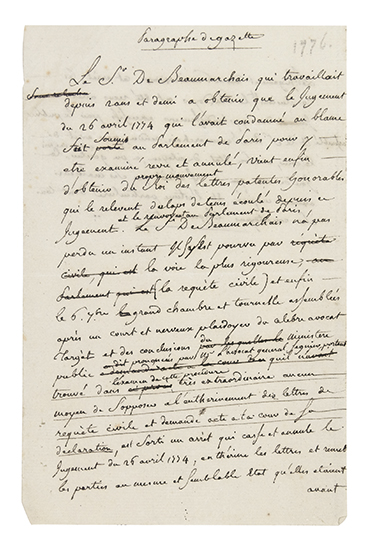 Paragraphe de gazette
1776.
Le Sr De Beaumarchais qui travaillait
depuis 2 ans et demi a obtenir que le Jugement
du 26 avril 1774 qui l'avait condamné au blame
Soumis
fût porté au parlement de Paris pour y
etre examiné revu et annulé, vient enfin
propre mouvement
d'obtenir du Roi des lettres patentes honorables
qui le relevent du laps de tems écoulé depuis ce
et le renvoyent au Parlement de Paris
Jugement. Le Sr De Beaumarchais n'a pas
perdu un instant Il s'est pourvu par requête
civile, qui est la voie la plus rigoureuse; au
Parlement qui est (la requête civile) et enfin
le 6. 7bre La grand chambre et tournelle assemblées
après un court et nerveux plaidoyer du celebre avocat
Target et des conclusions du ministere
public avocat general Seguier portant
qu'il n'avait
l'examen de cette procedure
trouvé dans très extraordinaire aucun
moyen de s'opposer a l'entherinement des lettres de
requête civile et demande acte a la cour de sa
déclaration, est sorti un arrêt qui casse et annule le
Jugement du 26 avril 1774, enthérine les lettres et remet
les parties au meme et semblable état qu'elles étaient
avant